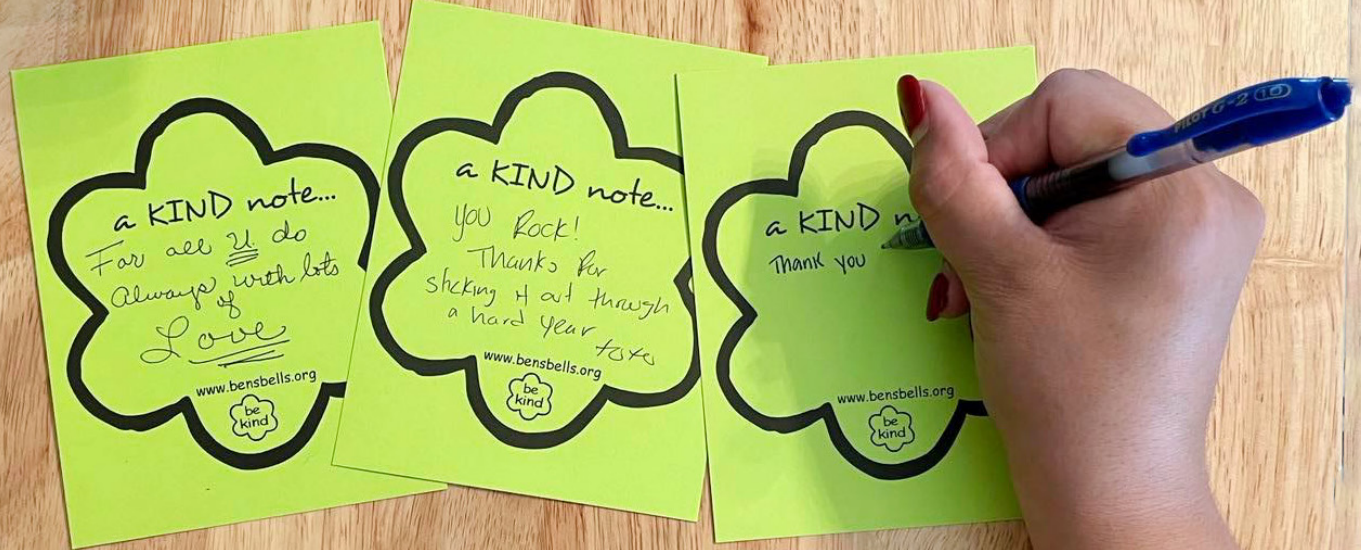 a KIND note...
For all U do
Always with lots
of
Love
www.bensbells.org
be
kind
a KIND note...
you Rock!
Thanks for
sticking it out through
a hard year
xoxo
www.bensbells.org
be
kind
a KIND n
Thank you
www.bensbells.org
be
kind
PILOT G-2 10